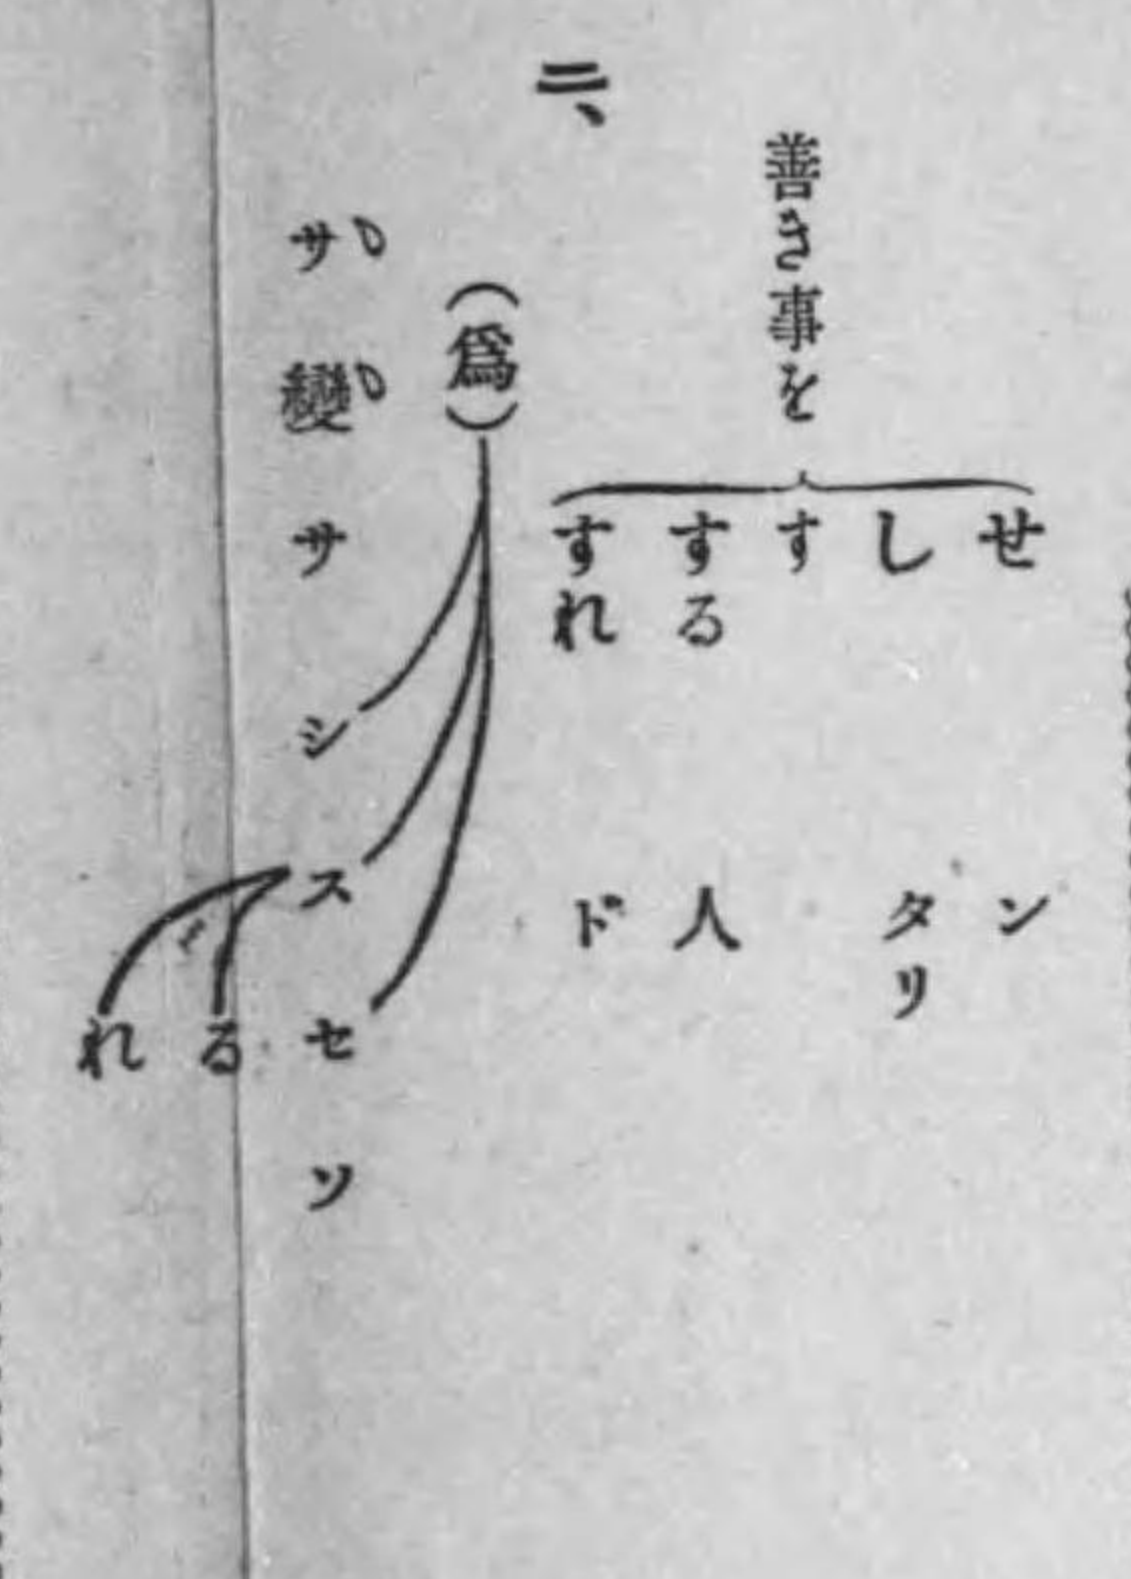 善き事を
せ ン
し タリ
す
する 人
すれ ド
二、
(爲)
サ變 サ シ ス セ ソ
る
れ